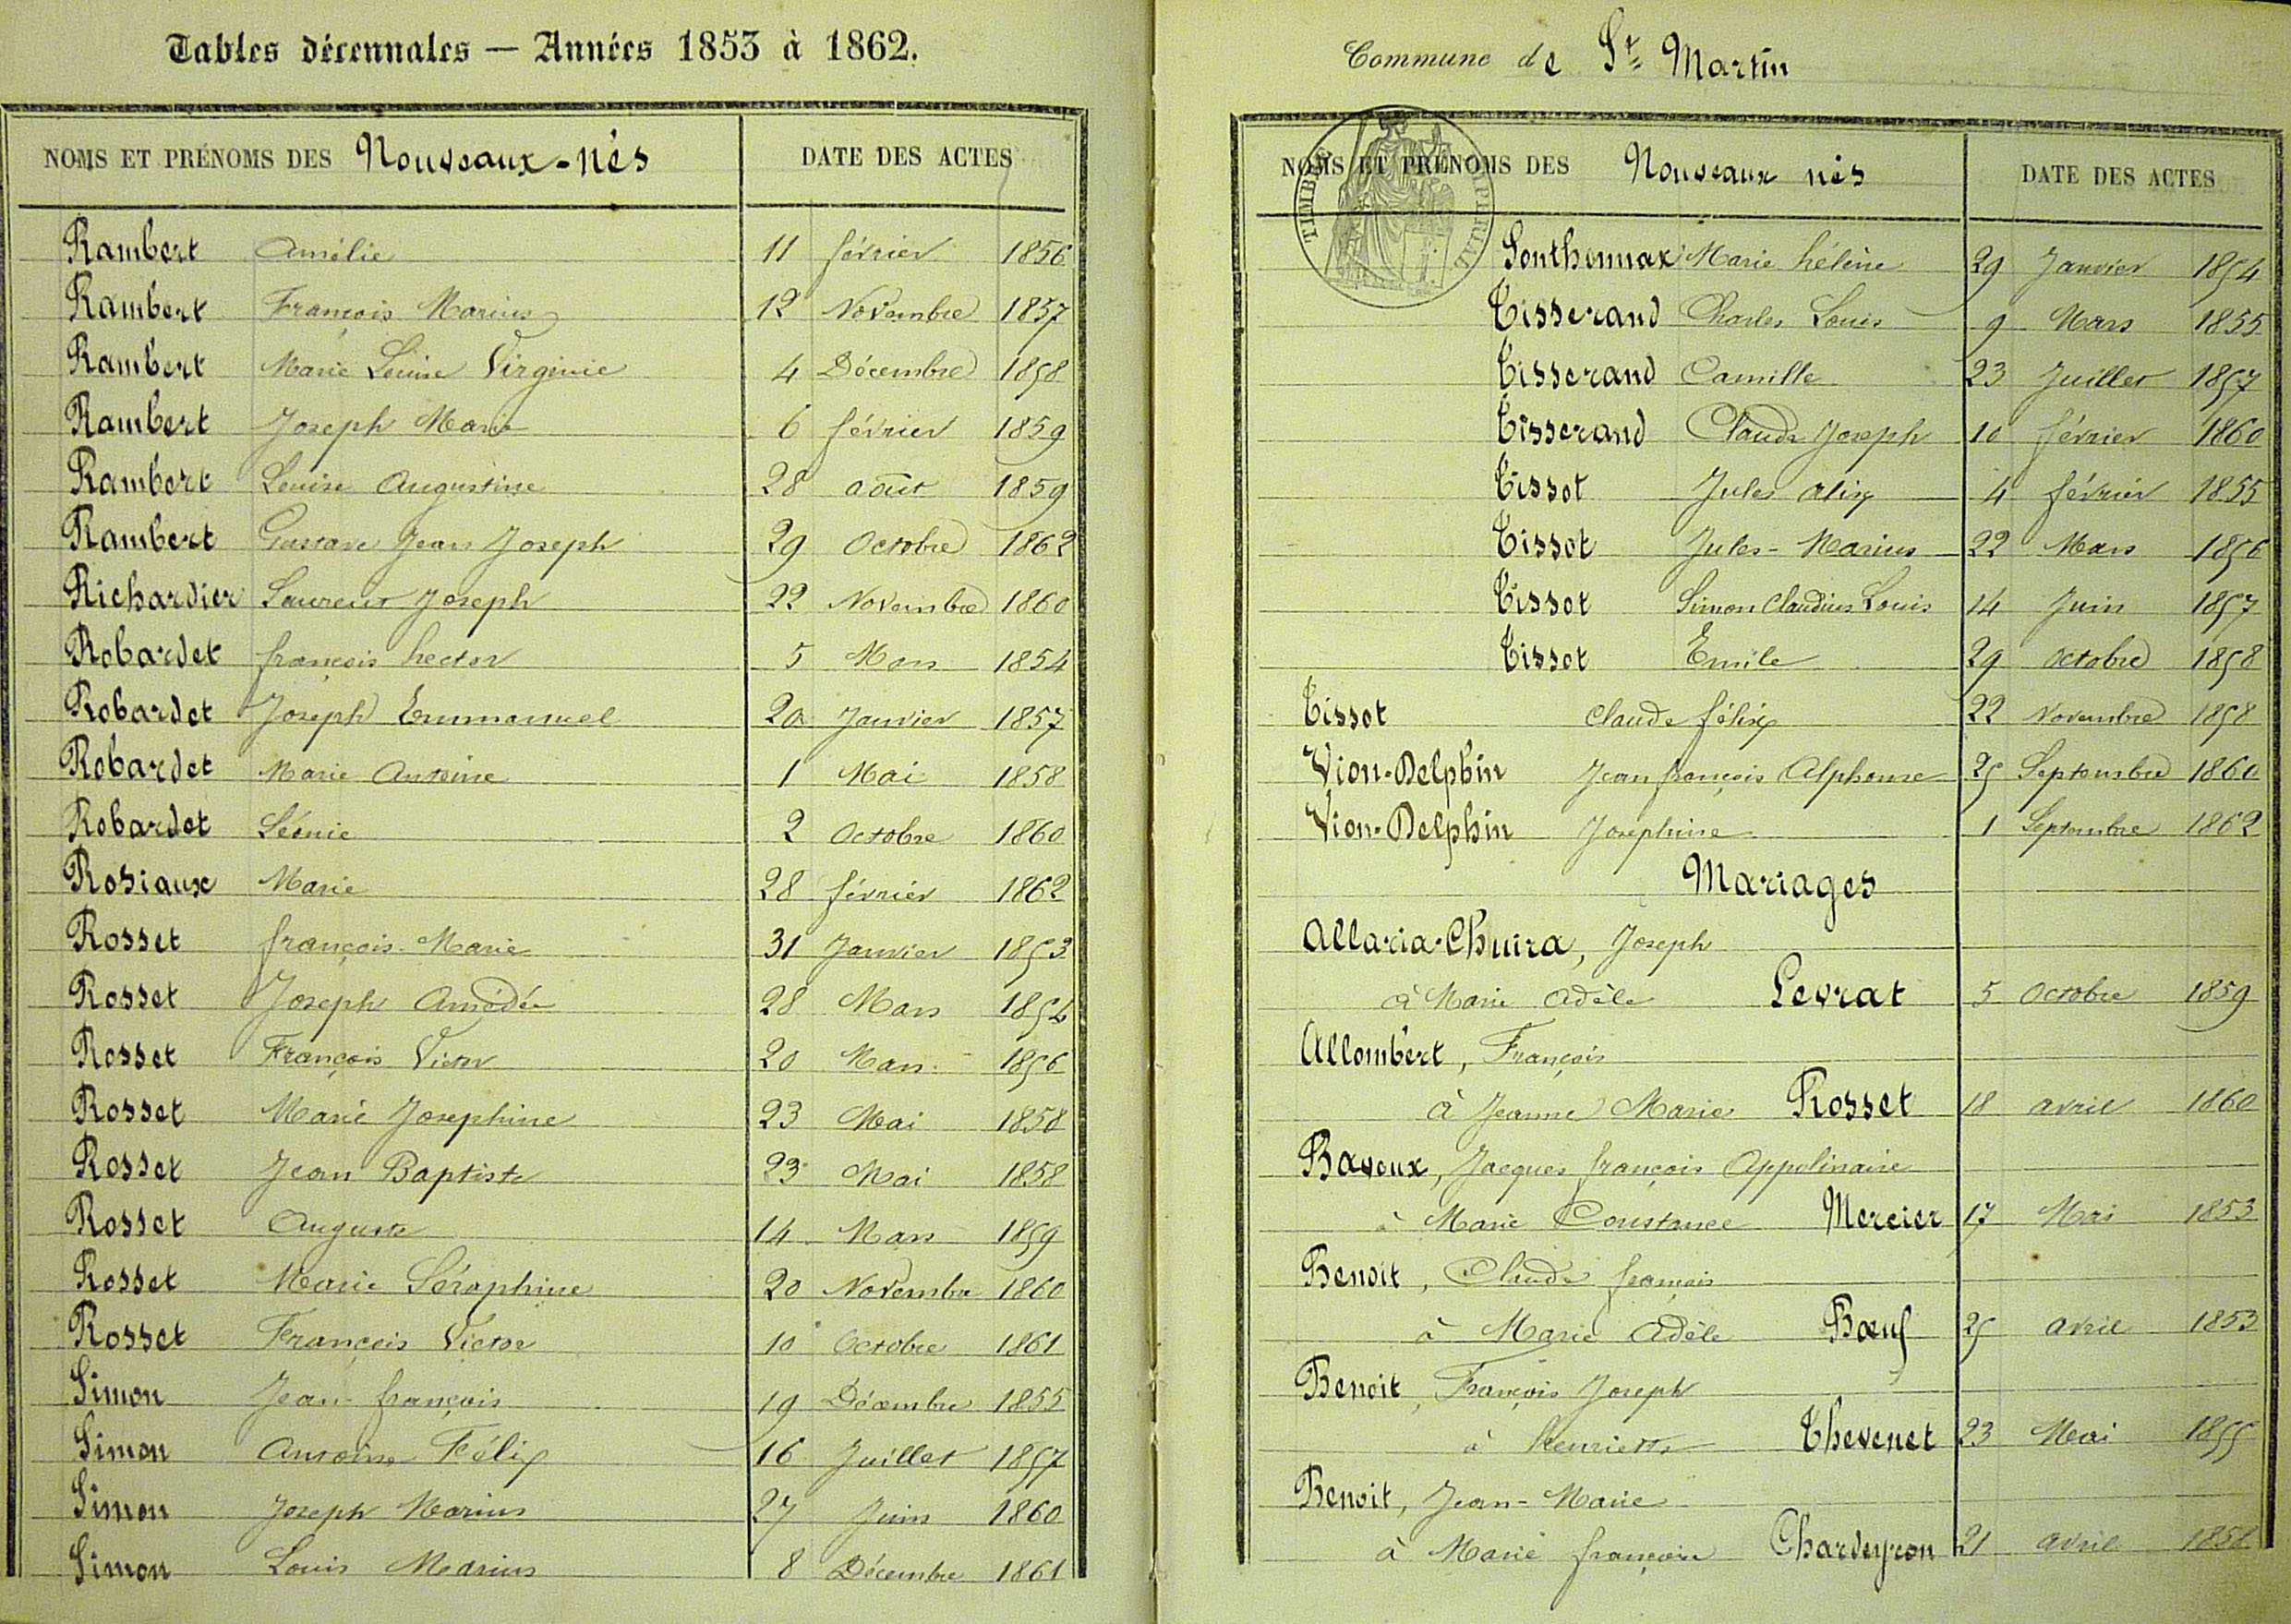 Tables décennales — Années 1853 à 1862.
NOMS ET PRÉNOMS DES Nouveaux-nés DATE DES ACTES
Rambert Amélie 11 février 1856
Rambert François Marius 12 Novembre 1857
Rambert Marie Louise Virginie 4 Décembre 1858
Rambert Joseph Marie 6 février 1859
Rambert Louise Augustine 28 août 1859
Rambert Gustave Jean Joseph 29 Octobre 1862
Richardier Laurent Joseph 22 Novembre 1860
Robardet françois hector 5 Mars 1854
Robardet Joseph Emmanuel 20 Janvier 1857
Robardet Marie Antoine 1 Mai 1858
Robardet Léonie 2 Octobre 1860
Rosiaux Marie 28 février 1862
Rosset françois-Marie 31 Janvier 1853
Rosset Joseph Amédée 28 Mars 1854
Rosset François Victor 20 Mars 1856
Rosset Marie Josephine 23 Mai 1858
Rosset Jean Baptiste 23 Mai 1858
Rosset Auguste 14 Mars 1859
Rosset Marie Séraphine 20 Novembre 1860
Rosset François Victor 10 Octobre 1861
Simon Jean-françois 19 Décembre 1855
Simon Antoine Félix 16 Juillet 1857
Simon Joseph Marius 27 Juin 1860
Simon Louis Marius 8 Décembre 1861
Commune de St Martin
TIMBRE IMPERIAL
NOMS ET PRÉNOMS DES Nouveaux nés DATE DES ACTES
Sonthonnax Marie hélène 29 Janvier 1854
Tisserand Charles Louis 9 Mars 1855
Tisserand Camille 23 Juillet 1857
Tisserand Claude Joseph 10 février 1860
Tissot Jules alix 4 février 1855
Tissot Jules-Marius 22 Mars 1856
Tissot Simon Claudius Louis 14 Juin 1857
Tissot Emile 29 octobre 1858
Tissot claude félix 22 Novembre 1858
Vion-Delphin Jean françois Alphonse 25 Septembre 1860
Vion-Delphin Josephine 1 Septembre 1862
Mariages
Allaria-Chuira, Joseph
à Marie Adèle Levrat 5 Octobre 1859
Allombert, François
à Jeanne Marie Rosset 18 avril 1860
Baveux, Jacques françois Appolinaire
à Marie Constance Mercier 17 Mai 1853
Benoit, Claude françois
à Marie Adèle Bœuf 25 avril 1853
Benoit, François Joseph
à henriette Thevenet 23 Mai 1855
Benoit, Jean-Marie
à Marie françoise Chardeyron 21 avril 1858